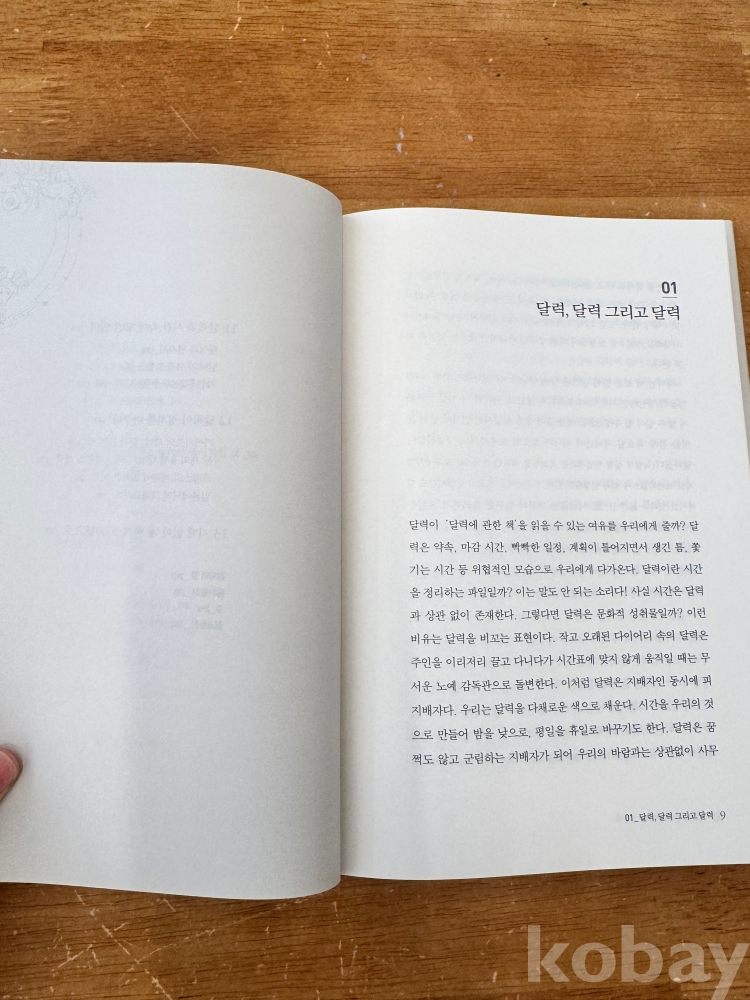 01
달력, 달력 그리고 달력
달력이 '달력에 관한 책'을 읽을 수 있는 여유를 우리에게 줄까? 달
력은 약속, 마감 시간, 빡빡한 일정, 계획이 틀어지면서 생긴 틈, 쫓
기는 시간 등 위협적인 모습으로 우리에게 다가온다. 달력이란 시간
을 정리하는 파일일까? 이는 말도 안 되는 소리다! 사실 시간은 달력
과 상관 없이 존재한다. 그렇다면 달력은 문화적 성취물일까? 이런
비유는 달력을 비꼬는 표현이다. 작고 오래된 다이어리 속의 달력은
주인을 이리저리 끌고 다니다가 시간표에 맞지 않게 움직일 때는 무
서운 노예 감독관으로 돌변한다. 이처럼 달력은 지배자인 동시에 피
지배자다. 우리는 달력을 다채로운 색으로 채운다. 시간을 우리의 것
으로 만들어 밤을 낮으로, 평일을 휴일로 바꾸기도 한다. 달력은 꿈
쩍도 않고 군림하는 지배자가 되어 우리의 바람과는 상관없이 사무
01_달력, 달력 그리고 달력 9
kobay